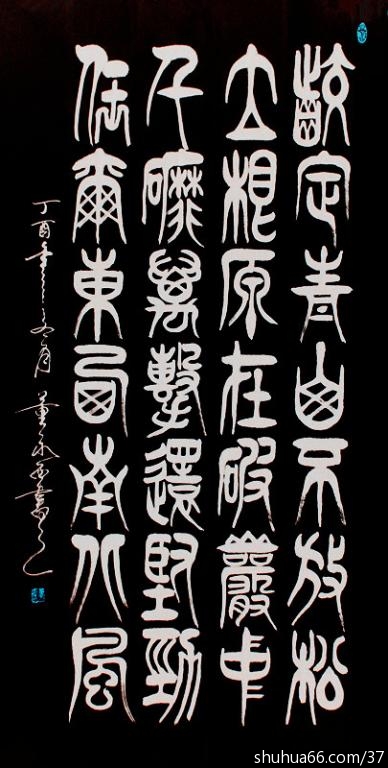 齩定青山不放松
立根原在破巖中
千磨萬擊還堅勁
任爾東西南北風
丁酉年 月 董永 書
shuhua66.com/37